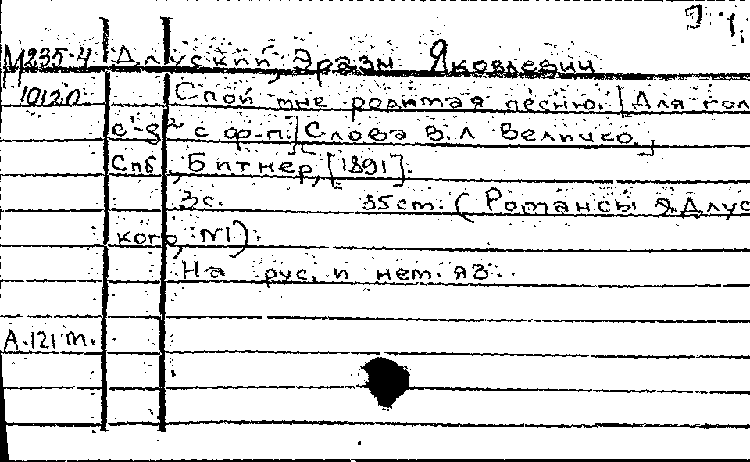 М235-4 Длуский, Эразм Яковлевич
10120 Спой мне родимая песню. [Для гол
c¹-g² с ф-п.] [Слова В.Л Величко.]
Спб, Битнер, [1891].
3с. 35ст. (Романсы Э.Длус
кого, N1).
На рус. и нем. яз.
А.121 т.